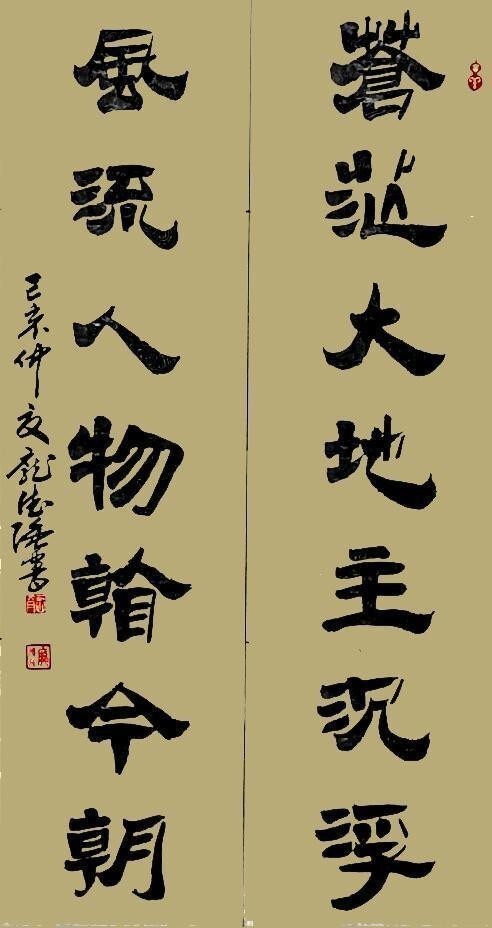 蒼茫大地主沉浮
風流人物看今朝
己亥仲夏龐德書